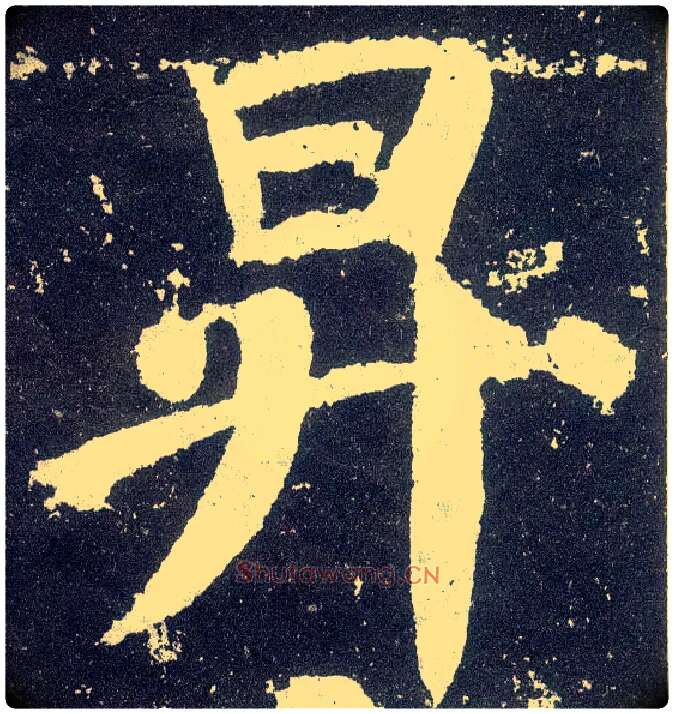 昇
Shufawang.CN